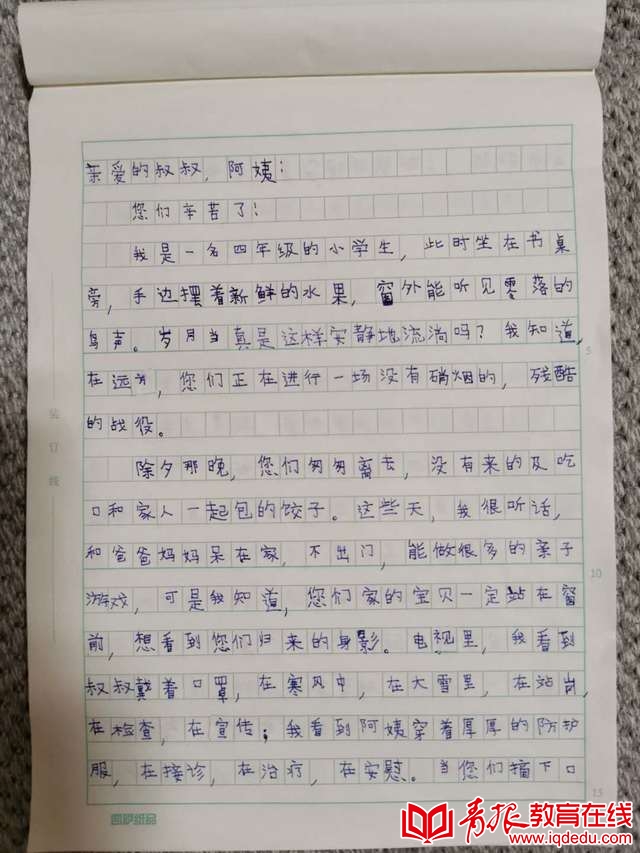 亲爱的叔叔，阿姨：
您们辛苦了！
我是一名四年级的小学生，此时坐在书桌
旁，手边摆着新鲜的水果，窗外能听见零落的
鸟声。岁月当真是这样安静地流淌吗？我知道，
在远方，您们正在进行一场没有硝烟的，残酷
的战役。
除夕那晚，您们匆匆离去，没有来的及吃
口和家人一起包的饺子。这些天，我很听话，
和爸爸妈妈呆在家，不出门，能做很多的亲子
游戏，可是我知道，您们家的宝贝一定站在窗
前，想看到您们归来的身影。电视里，我看到
叔叔戴着口罩，在寒风中，在大雪里，在站岗，
在检查，在宣传；我看到阿姨穿着厚厚的防护
服，在接诊，在治疗，在安慰。当您们摘下口
装订线
5
10
15
青报教育在线
www.iqdedu.com